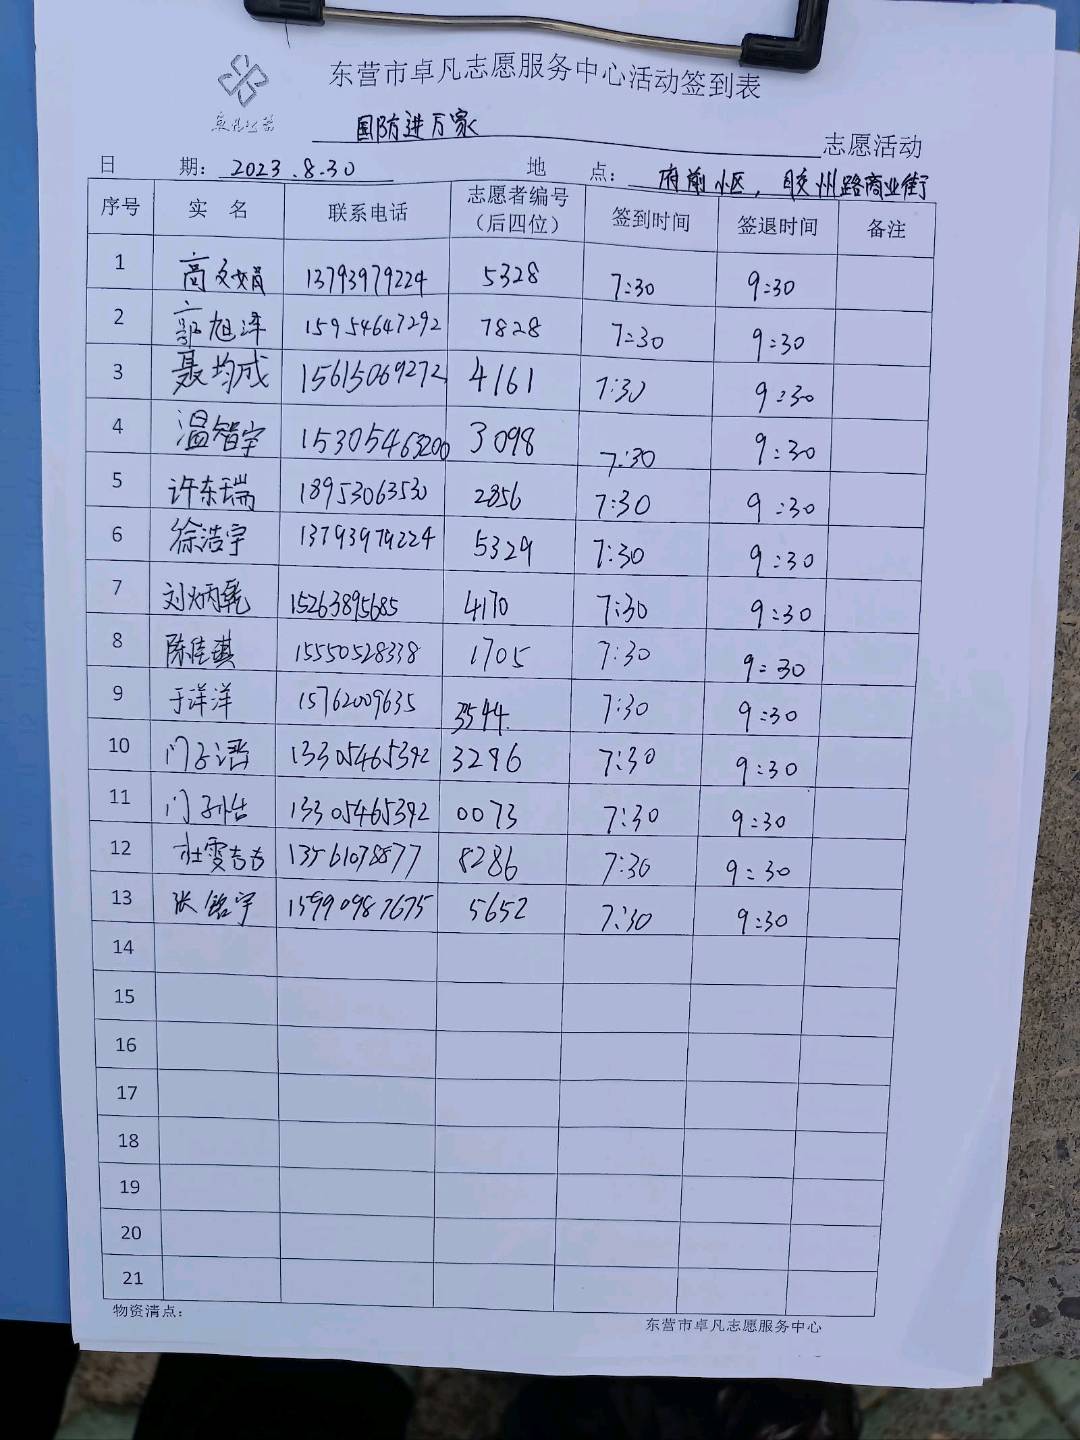 东营市卓凡志愿服务中心活动签到表
国防进万家 志愿活动
日 期: 2023.8.30 地 点: 府前小区,胶州路商业街
序号 实 名 联系电话 志愿者编号(后四位) 签到时间 签退时间 备注
1 高文娟 13793979224 5328 7:30 9:30
2 郭旭泽 15954647292 7828 7:30 9:30
3 聂均成 15615069272 4161 7:30 9:30
4 温智宇 15305463200 3098 7:30 9:30
5 许东瑞 18953063530 2856 7:30 9:30
6 徐浩宇 13793979224 5329 7:30 9:30
7 刘炳乾 15263895685 4170 7:30 9:30
8 陈佳琪 15550528338 1705 7:30 9:30
9 于洋洋 15762009635 3544 7:30 9:30
10 门子语 13305465392 3286 7:30 9:30
11 门 13305465392 0073 7:30 9:30
12 杜雯 13561078877 8286 7:30 9:30
13 张铭宇 15990987675 5652 7:30 9:30
14
15
16
17
18
19
20
21
物资清点:
东营市卓凡志愿服务中心